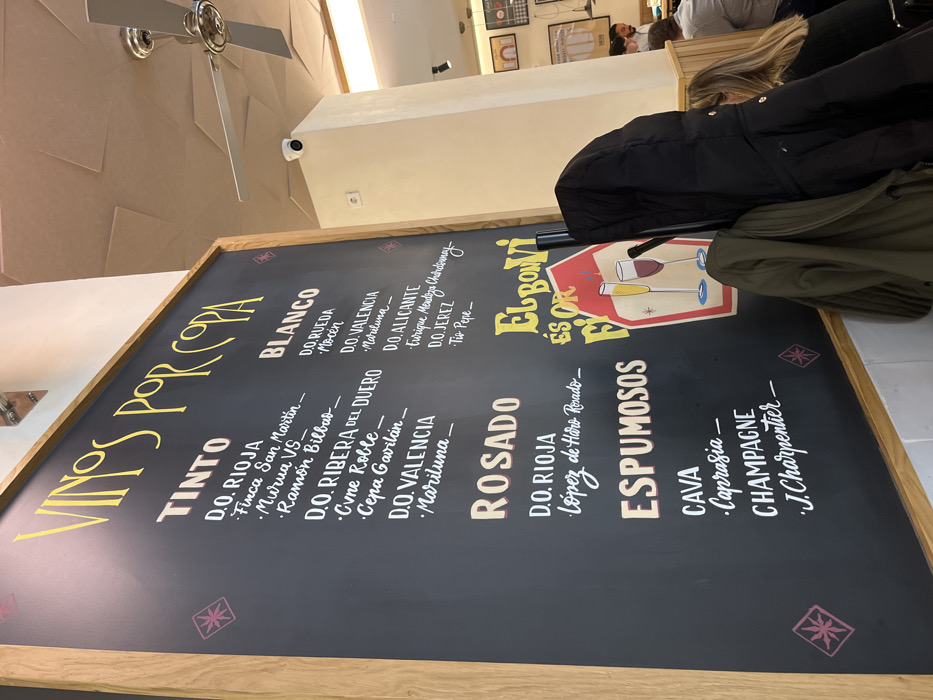 VINOS POR COPA
TINTO
D.O. RIOJA
·Finca San Martín
·Murua VS
·Ramón Bilbao
D.O. RIBERA DEL DUERO
·Cune Roble
·Cepa Gavilán
D.O. VALENCIA
·Mariluna
ROSADO
D.O. RIOJA
·López de Haro Rosado
ESPUMOSOS
CAVA
·Caprasia
CHAMPAGNE
·J. Charpentier
BLANCO
D.O. RUEDA
·Mocén
D.O. VALENCIA
·Mariluna
D.O. ALICANTE
·Enrique Mendoza Chardonnay
D.O. JEREZ
·Tío Pepe
EL BON VI
ÉS OR
FI